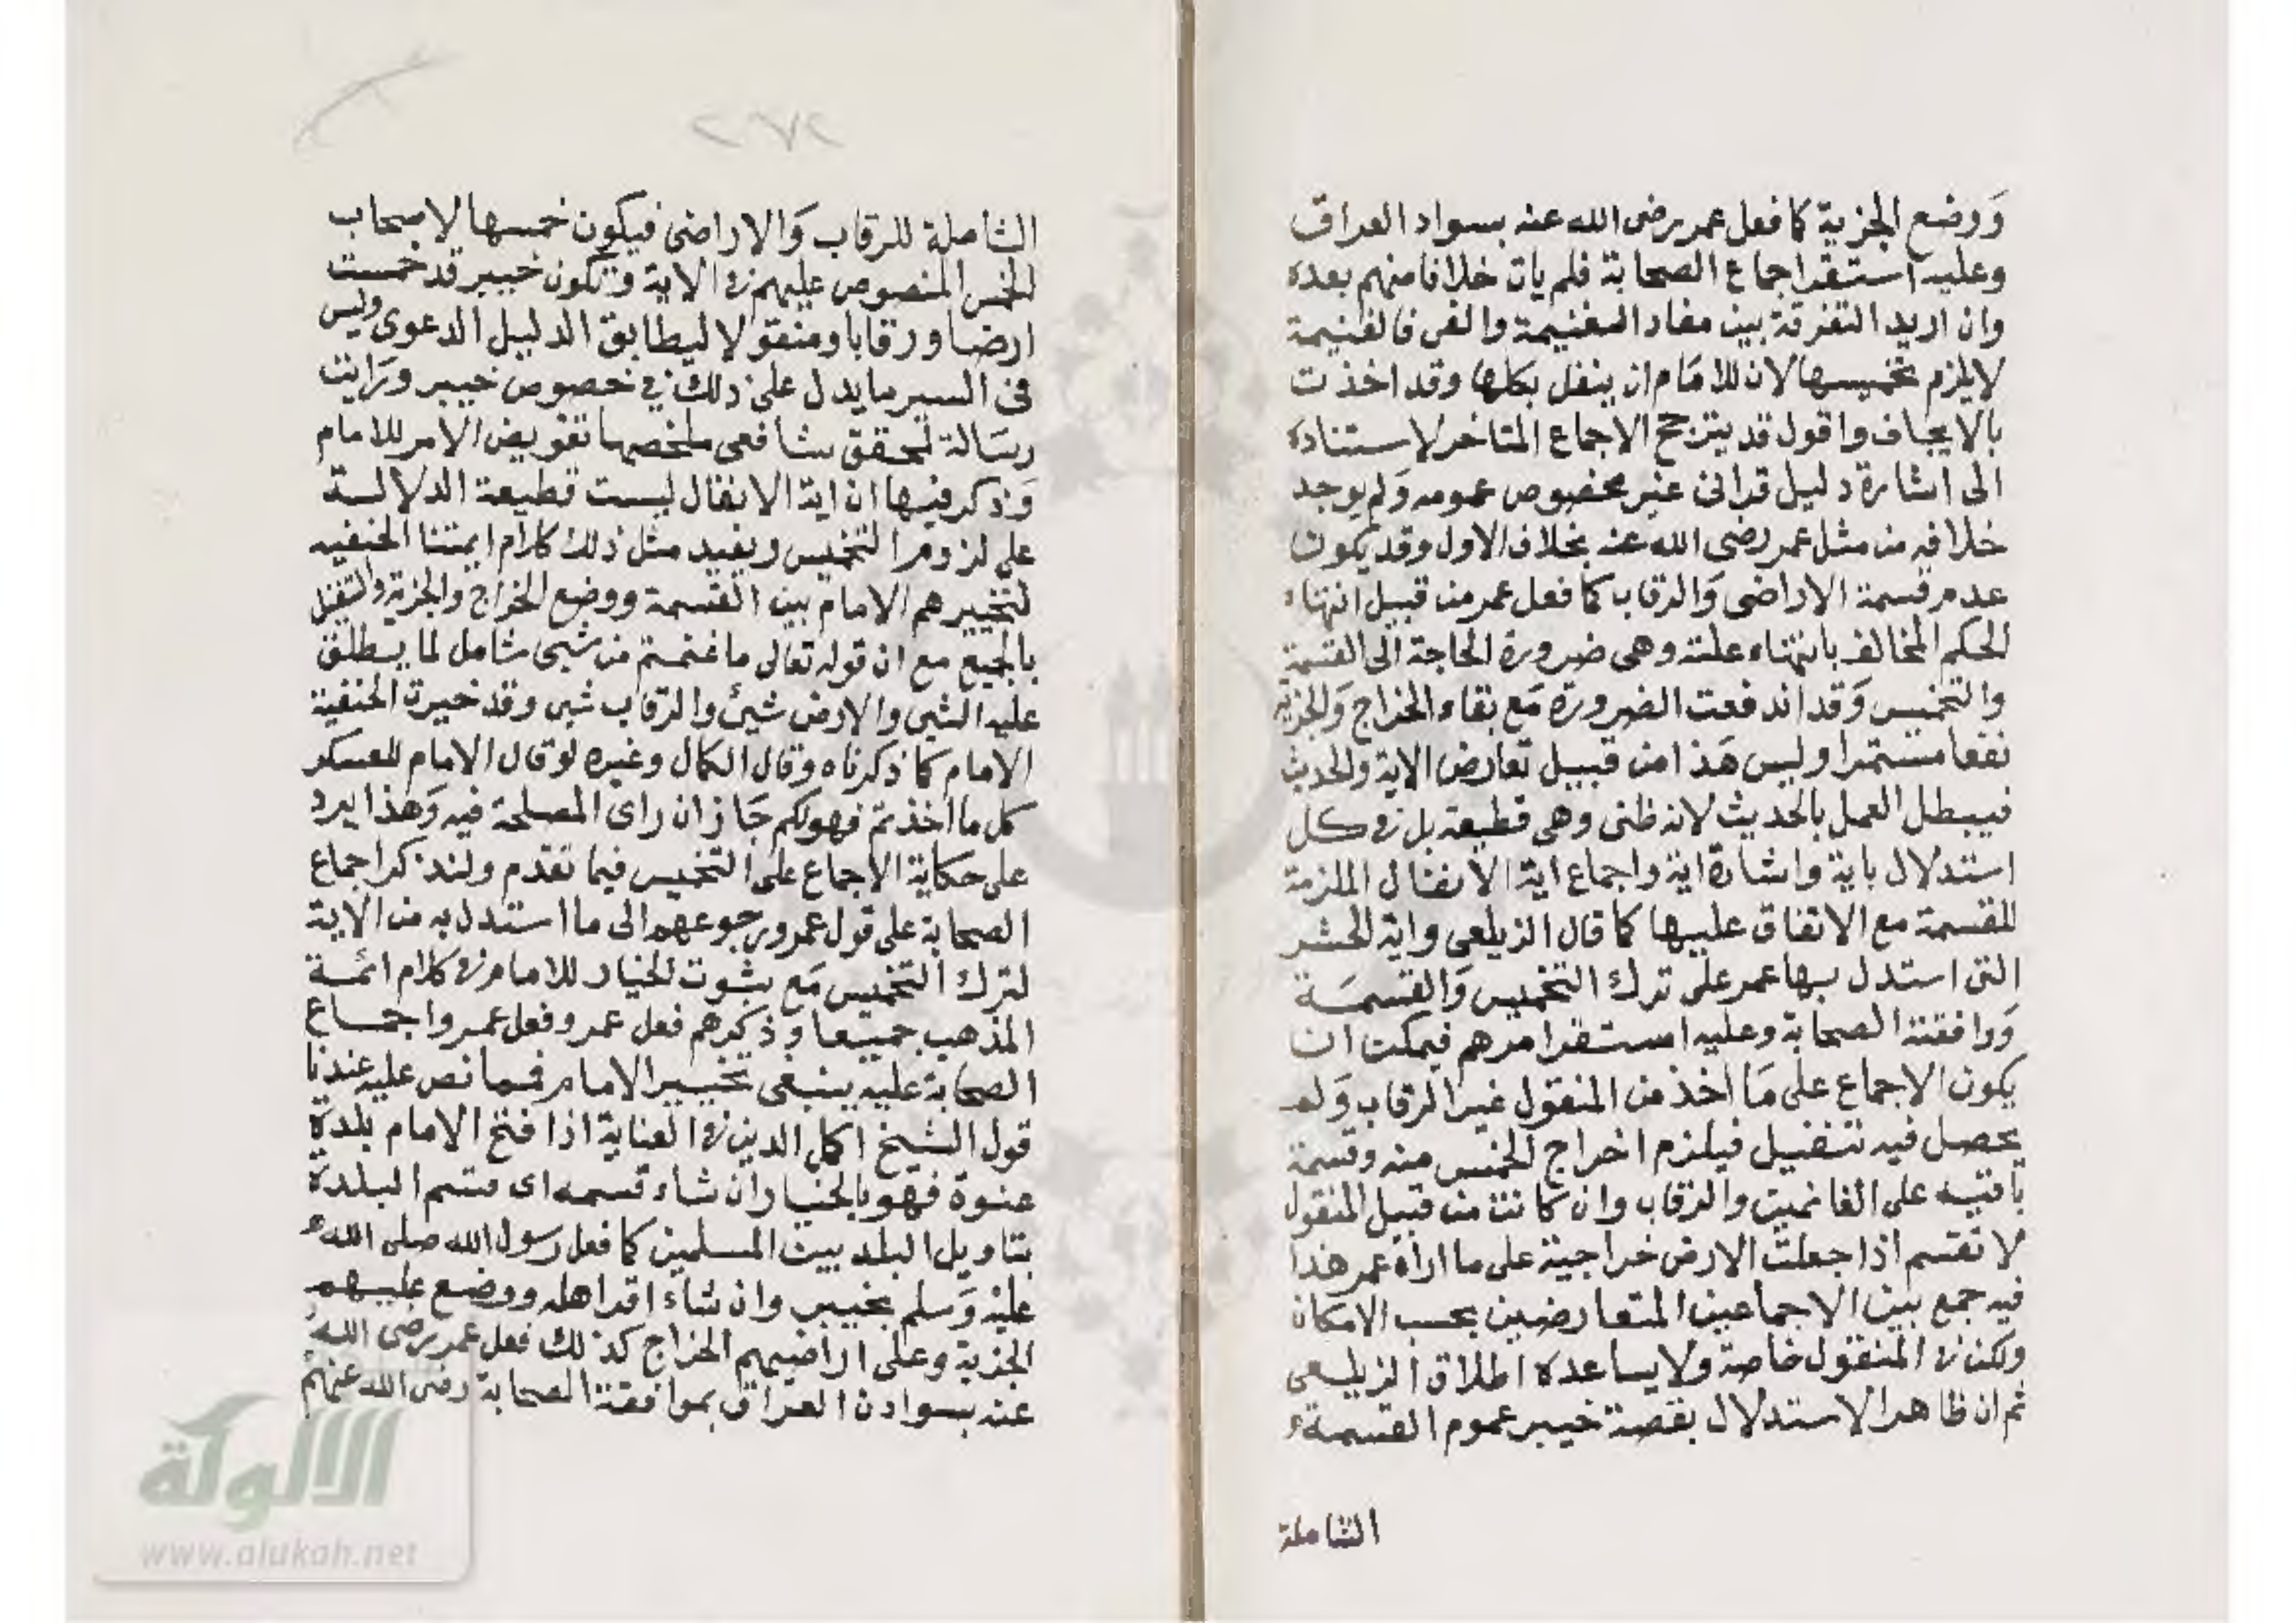 وَوضع الجزية كما فعل عمر رضى الله عنه بسواد العراق
وعليه استقر اجماع الصحابة فلم يات خلافا منهم بعده
وان اريد التفرقة بين مفاد الغنيمة والفى فالغنيمة
لايلزم تخميسها لان للامام ان ينفل بكلها وقد اخذت
بالايجاف واقول قد يترجح الاجماع المتاخر لاستناده
الى اشارة دليل قرانى غير مخصوص عمومه وَلم يوجد
خلافه من مثل عمر رضى الله عنه بخلاف الاول وقد يكون
عدم قسمة الاراضى وَالرقاب كما فعل عمر من قبيل انتهاء
الحكم المخالف بانتهاء علته وهى ضرورة الحاجة الى القسمة
والتخميس وَقد اندفعت الضرورة مَع بقاء الخراج وَالجزية
نفعا مستمرا وليس هَذا من قبيل تعارض الاية والحديث
فيبطل العمل بالحديث لانه ظنى وهى قطيعة بل فى كل
استدلال باية واشارة اية واجماع اية الانفال الملزمة
للقسمة مع الاتفاق عليها كما قال الزيلعى واية الحشر
التى استدل بها عمر على ترك التخميس وَالقسمَة
وَوافقته الصحابة وعليه استقر امرهم فيمكن ان
يكون الاجماع على مَا اخذ من المنقول غير الرقاب وَلم
يحصل فيه تنفيل فيلزم اخراج الخمس منه وقسمة
باقيه على الغانمين والرقاب وان كانت من قبيل المنقول
لا تقسم اذا جعلت الارض خراجية على ما اراه عمر هذا
فيه جمع بين الاجماعين المتعارضين بحسب الامكان
ولكن فى المنقول خاصة ولا يساعده اطلاق الزيلعى
ثم ان ظاهر الاستدلال بقصة خيبر عموم القسمة
الشاملة
٢٧٢
الشاملة للرقاب وَالاراضى فيكون خمسها لاصحاب
الخمس المنصوص عليهم فى الاية وتكون خيبر قد خمست
ارضا ورقابا ومنقولا ليطابق الدليل الدعوى وليس
فى السير ما يدل على ذلك فى خصوص خيبر ورَايت
رسَالة لمحقق شافعى ملخصها تفويض الامر للامام
وَذكر فيها ان اية الانفال ليست قطيعة الدلالة
على لزوم التخميس ويفيد مثل ذلك كلام ايمتنا الحنفيه
لتخييرهم الامام بين القسمة ووضع الخراج والجزية والتنفل
بالجميع مع ان قوله تعالى ما غنمتم من شيى شامل لما يطلق
عليه الشيى والارض شيئ والرقاب شيى وقد خيرت الحنفية
الامام كما ذكرناه وقال الكمال وغيره لو قال الامام للعسكر
كل ما اخذتم فهو لكم جَاز ان راى المصلحة فيه وَهذا يرد
على حكاية الاجماع على التخميس فيما تقدم ولنذكر اجماع
الصحابة على قول عمر ورجوعهم الى ما استدل به من الاية
لترك التخميس مَع بثبوت الخيار للامام فى كلام ائمة
المذهب جميعا وذكرهم فعل عمر وفعل عمر واجماع
الصحابة عليه ينبغى تخيير الامام فمما نص عليه عندنا
قول الشيخ اكمل الدين فى العناية اذا فتح الامام بلدة
عنوة فهو بالخيار ان شاء قسمه اى قسم البلدة
بتاويل البلد بين المسلمين كما فعل رسول الله صلى الله
عليه وَسلم بخيبر وان شاء اقر اهله ووضع عليهم
الجزية وعلى اراضيهم الخراج كذلك فعل عمر رضى الله
عنه بسوادن العراق بموافقة الصحابة رضى الله عنهم
الالوكة
www.alukah.net